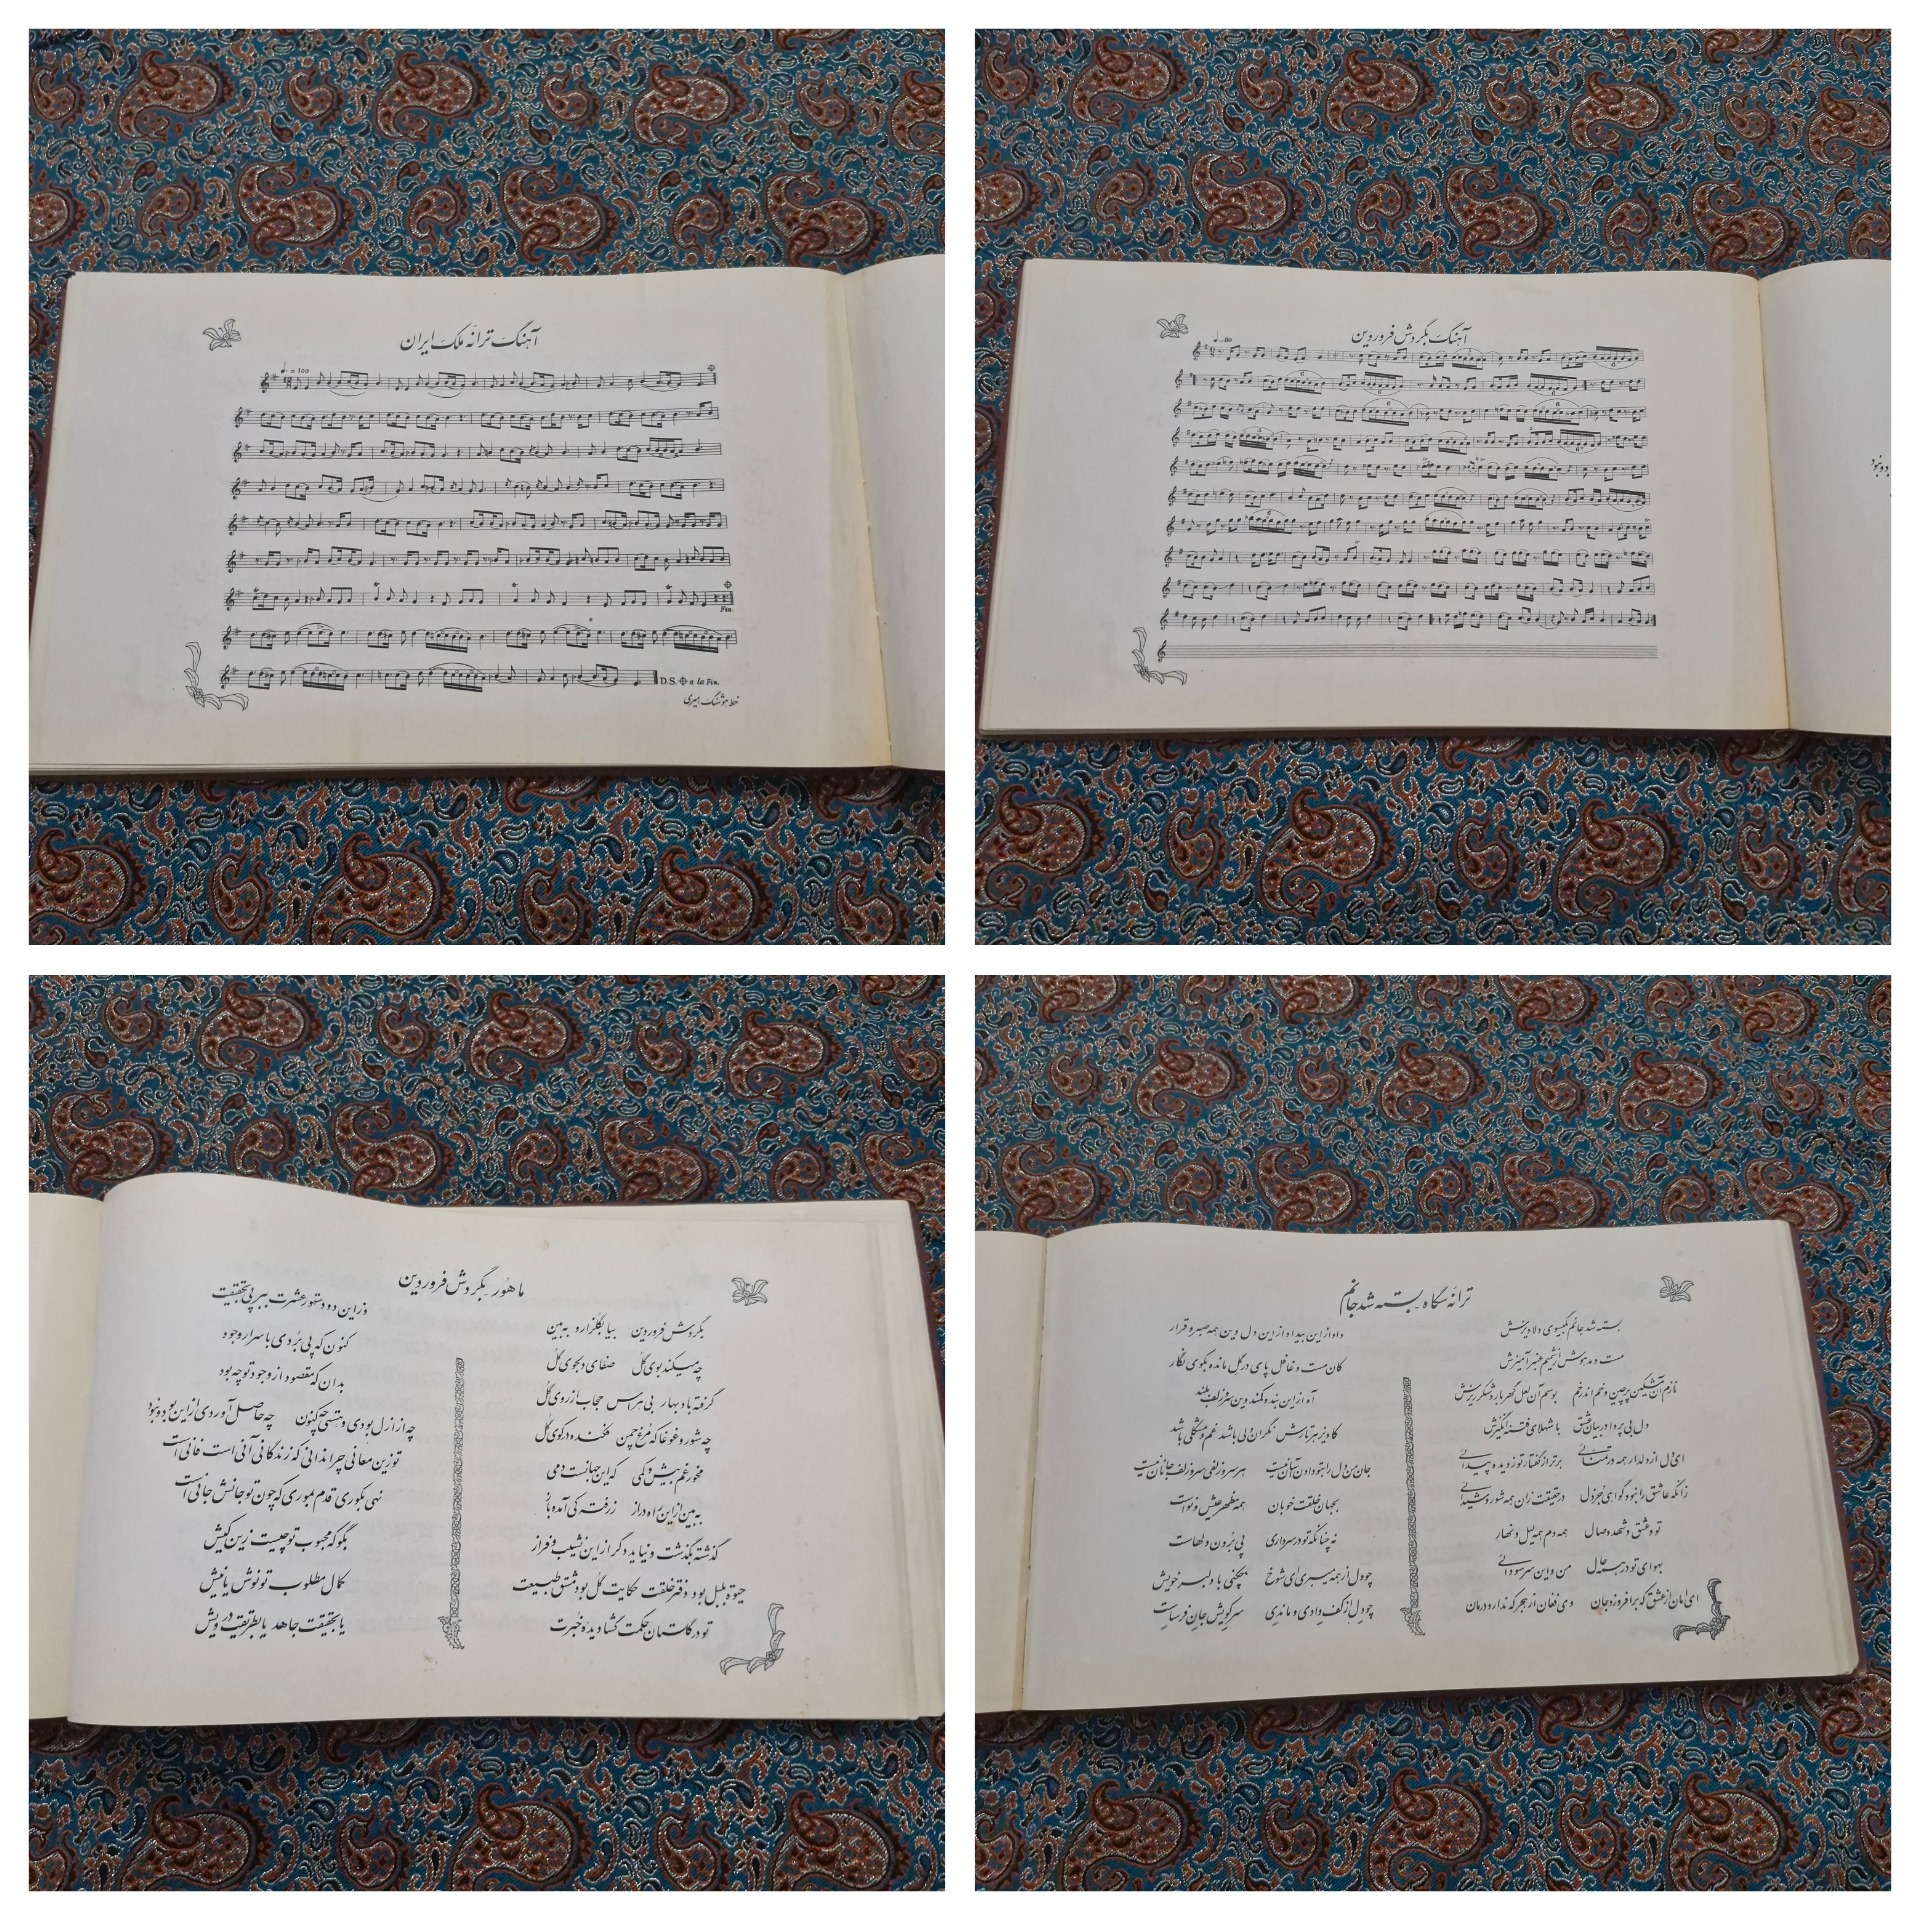 آهنگ ترانه ملک ایران
♩. = 100
Fin.
D.S. 𝄌 a la Fin.
خط هوشنگ امیری
آهنگ بگردش فروردین
♩=80
ماهور ـ بگردش فروردین
بگردش فروردین بیا بگلزار و به بین
چه میکند بوی گل صفای دلجوی گل
گرفته باد بهار بی هراس حجاب از روی گل
چه شور و غوغا که مرغ چمن فکنده در کوی گل
مخور غم بیش و کمی که این جهانست دمی
به بین از این راه دراز ز رفته کی آمده باز
گذشته بگذشت و نیاید دگر از این نشیب و فراز
بلبل بود دفتر خلقت حکایت گل بود مشق طبیعت
تو در گلستان حکمت گشا دیده خبرت
وز این دو دستور عشرت ببر پی بحقیقت
کنون که پی بردی باسرار وجود
بدان که مقصود از وجود تو چه بود
چه از ازل بودی و هستی چه کنون چه حاصل آوردی از این بود و نبود
تو زین معانی چرا ندانی که زندگانی آنی است فانی است
نهی بکوری قدم بموری که چون تو جانش جانی است
بگو که محبوب تو چیست زین کیش
کمال مطلوب تو نوش یا نیش
یا بحقیقت جاهد یا بطریقت درویش
ترانه سگاه ـ بسته شد جانم
بسته شد جانم بگیسوی دلاویزش
مست و مدهوش از شمیم عنبر آمیزش
نازم آن مشگین پرچین و خم اندر خم بوسم آن لعل گهربار و شکرریزش
دل بی پروا در بیان عشق با شهلای فتنه انگیزش
ای دل از دلدار همه در تمنائی برتر از گفتار تو ز دیده پیدائی
زانکه عاشق را نبود گواهی بجز دل در حقیقت زان همه شور و شیدائی
تو و عشق و شهد وصال همه دم همه لیل و نهار
بهوای تو در همه حال من و این سر سودائی
ای امان از عشق که برافروزد جان وی فغان از هجر که ندارد درمان
داد از این بیداد از این دل وین همه صبر و قرار
کان مست و غافل پای در گل مانده بکوی نگار
آه از این بند و کمند وین سر زلف بلند
کاویز هر تارش نگران دلی باشد غم و مشکلی باشد
جان من دل را بتو دادن آسان نیست هر سر زلفی سر زلف جانان نیست
بجهان خلقت خوبان همه مظهر عیش و نواست
نه چنانکه تو در سر داری پی بردن دلهاست
چو دل از همه میبری ای شوخ چکنی با دلبر خویش
چو دل از کف دادی و ماندی سر کویش جان فرساست